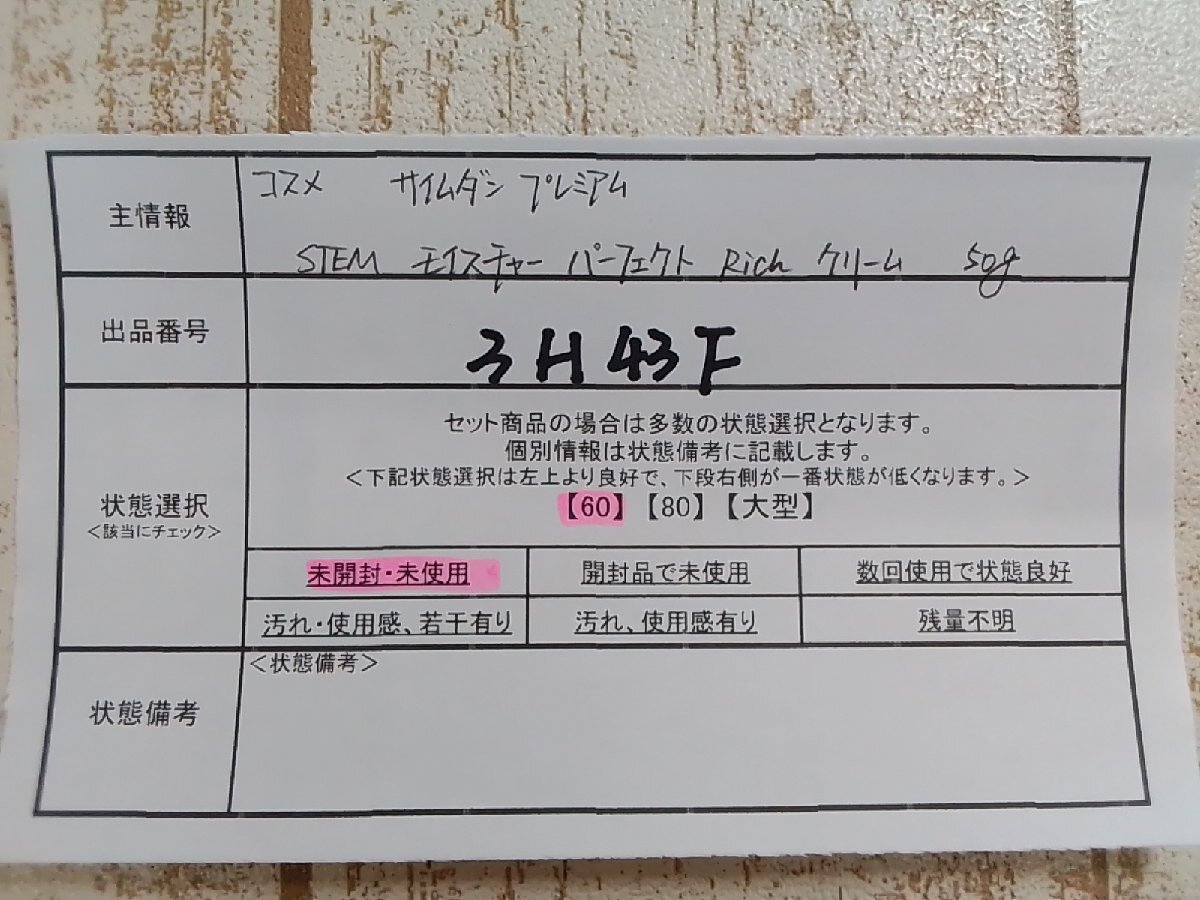 主情報
コスメ サイムダン プレミアム
STEM モイスチャー パーフェクト Rich クリーム 50g
出品番号
3H43F
状態選択
<該当にチェック>
セット商品の場合は多数の状態選択となります。
個別情報は状態備考に記載します。
<下記状態選択は左上より良好で、下段右側が一番状態が低くなります。>
【60】【80】【大型】
未開封・未使用 開封品で未使用 数回使用で状態良好
汚れ・使用感、若干有り 汚れ、使用感有り 残量不明
状態備考
<状態備考>